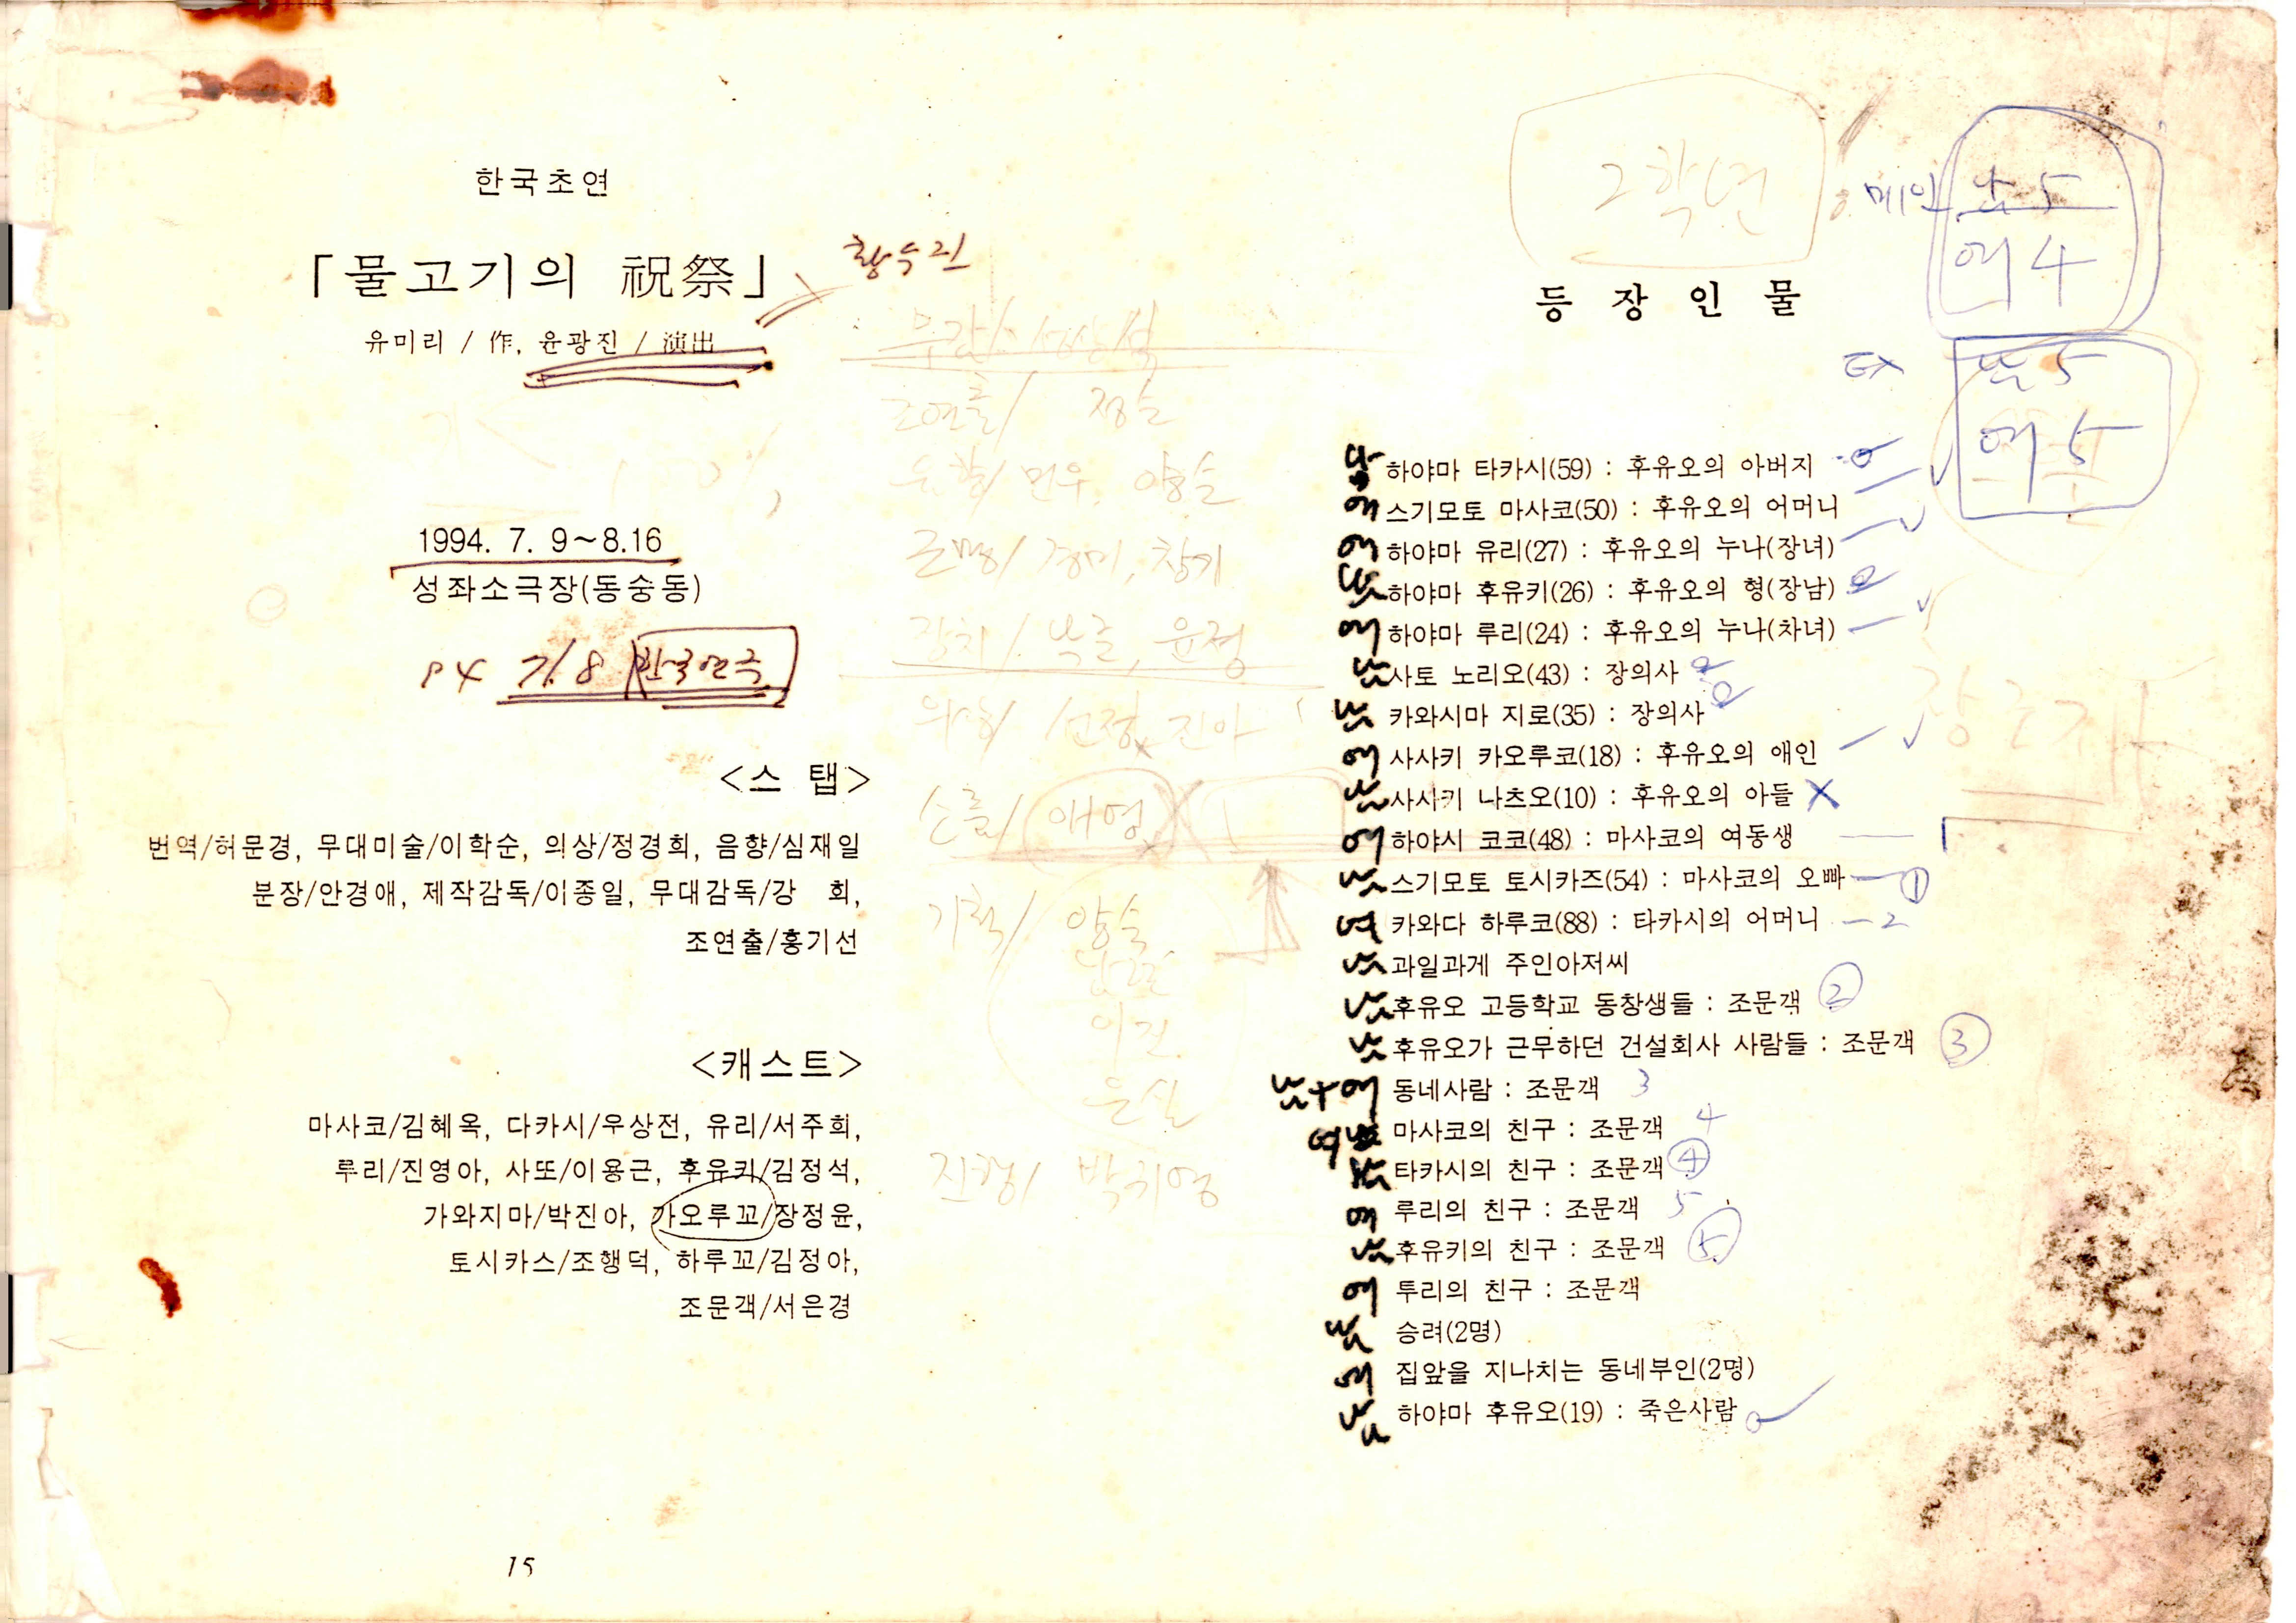 한국초연
「물고기의 祝祭」
황수진
유미리 / 作, 윤광진 / 演出
1994. 7. 9~8.16
성좌소극장(동숭동)
94 7/8 한국연극
<스 탭>
번역/허문경, 무대미술/이학순, 의상/정경희, 음향/심재일
분장/안경애, 제작감독/이종일, 무대감독/강 회,
조연출/홍기선
<캐스트>
마사코/김혜옥, 다카시/우상전, 유리/서주희,
루리/진영아, 사또/이용근, 후유키/김정석,
가와지마/박진아, 가오루꼬/장정윤,
토시카스/조행덕, 하루꼬/김정아,
조문객/서은경
15
무감/
조연출/
민우, 양슬
조명/ 경미, 창기
장치/ 낙근, 윤정
의상/ 선정, 진아
소품/ 애영
기획/ 양숙
은실
진행/ 박귀영
2학년
메인 남 5
여 4
등 장 인 물
EX 남 5
여 5
남 하야마 타카시(59) : 후유오의 아버지
여 스기모토 마사코(50) : 후유오의 어머니
여 하야마 유리(27) : 후유오의 누나(장녀)
남 하야마 후유키(26) : 후유오의 형(장남)
여 하야마 루리(24) : 후유오의 누나(차녀)
남 사토 노리오(43) : 장의사
남 카와시마 지로(35) : 장의사
여 사사키 카오루코(18) : 후유오의 애인
남 사사키 나츠오(10) : 후유오의 아들 X
여 하야시 코코(48) : 마사코의 여동생 1
남 스기모토 토시카즈(54) : 마사코의 오빠 ①
여 카와다 하루코(88) : 타카시의 어머니 - 2
남 과일과게 주인아저씨
남 후유오 고등학교 동창생들 : 조문객 ②
남 후유오가 근무하던 건설회사 사람들 : 조문객 ③
남+여 동네사람 : 조문객 3
여 마사코의 친구 : 조문객 4
남 타카시의 친구 : 조문객 ④
여 루리의 친구 : 조문객 5
남 후유키의 친구 : 조문객 ⑤
여 투리의 친구 : 조문객
남 승려(2명)
여 집앞을 지나치는 동네부인(2명)
남 하야마 후유오(19) : 죽은사람